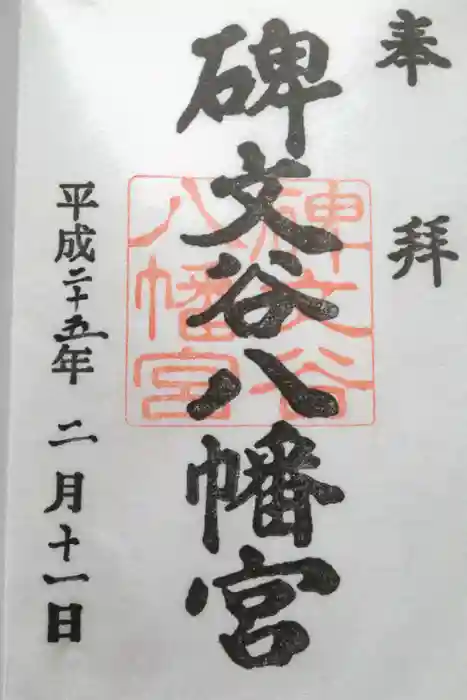 奉拝
碑文谷八幡宮
碑文谷
八幡宮
平成二十五年二月十一日